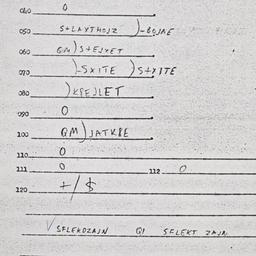 040 0
050 S+LAYTHOJZ )-BOJAE
060 GM)S+EJYET
070 )-SXITE )S+XITE
080 )KPEJLET
090 0
100 GM)JATKBE
110 0
111 0 112 0
120 +/$
√ SELEKDZAJN GI SELEKT ZAJN